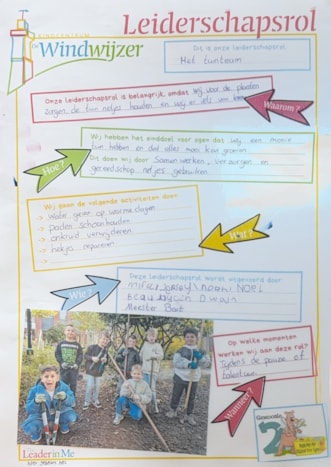 Leiderschapsrol
KINDCENTRUM
De Windwijzer
Dit is onze leiderschapsrol
Het tuinteam
Onze leiderschapsrol is belangrijk, omdat wij voor de planten
zorgen, de tuin netjes houden en
Waarom?
Wij hebben het einddoel voor ogen dat wij een mooie
tuin hebben en dat alles mooi kan groeien
Dit doen wij door Samenwerken, verzorgen en
gereedschap netjes gebruiken
Hoe?
Wij gaan de volgende activiteiten doen
-> Water geven op warme dagen
-> paden schoonhouden
-> onkruid verwijderen
-> hekjes repareren
->
Wat?
Deze leiderschapsrol wordt uitgevoerd door
Noël
Meester Bart
Wie?
Op welke momenten
werken wij aan deze rol?
Tijdens de pauze of
Wanneer?
Gewoonte
2
Leader in Me